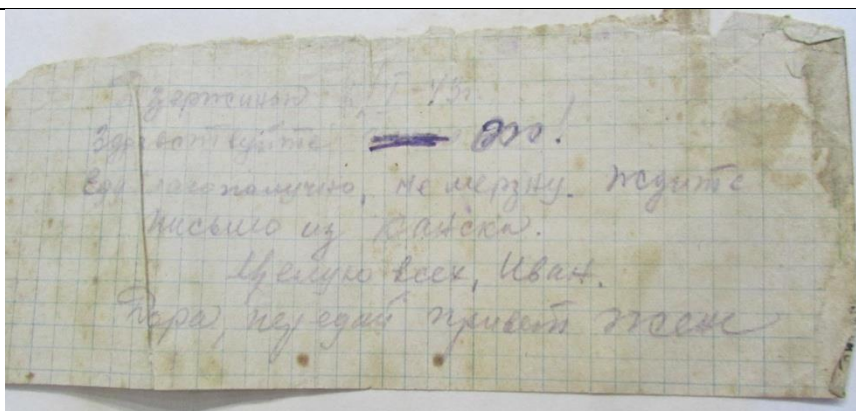 Здравствуйте
Еду благополучно, не мерзну. Ждите
письмо из Канска.
Целую всех, Иван.
Дора, передай привет Жене